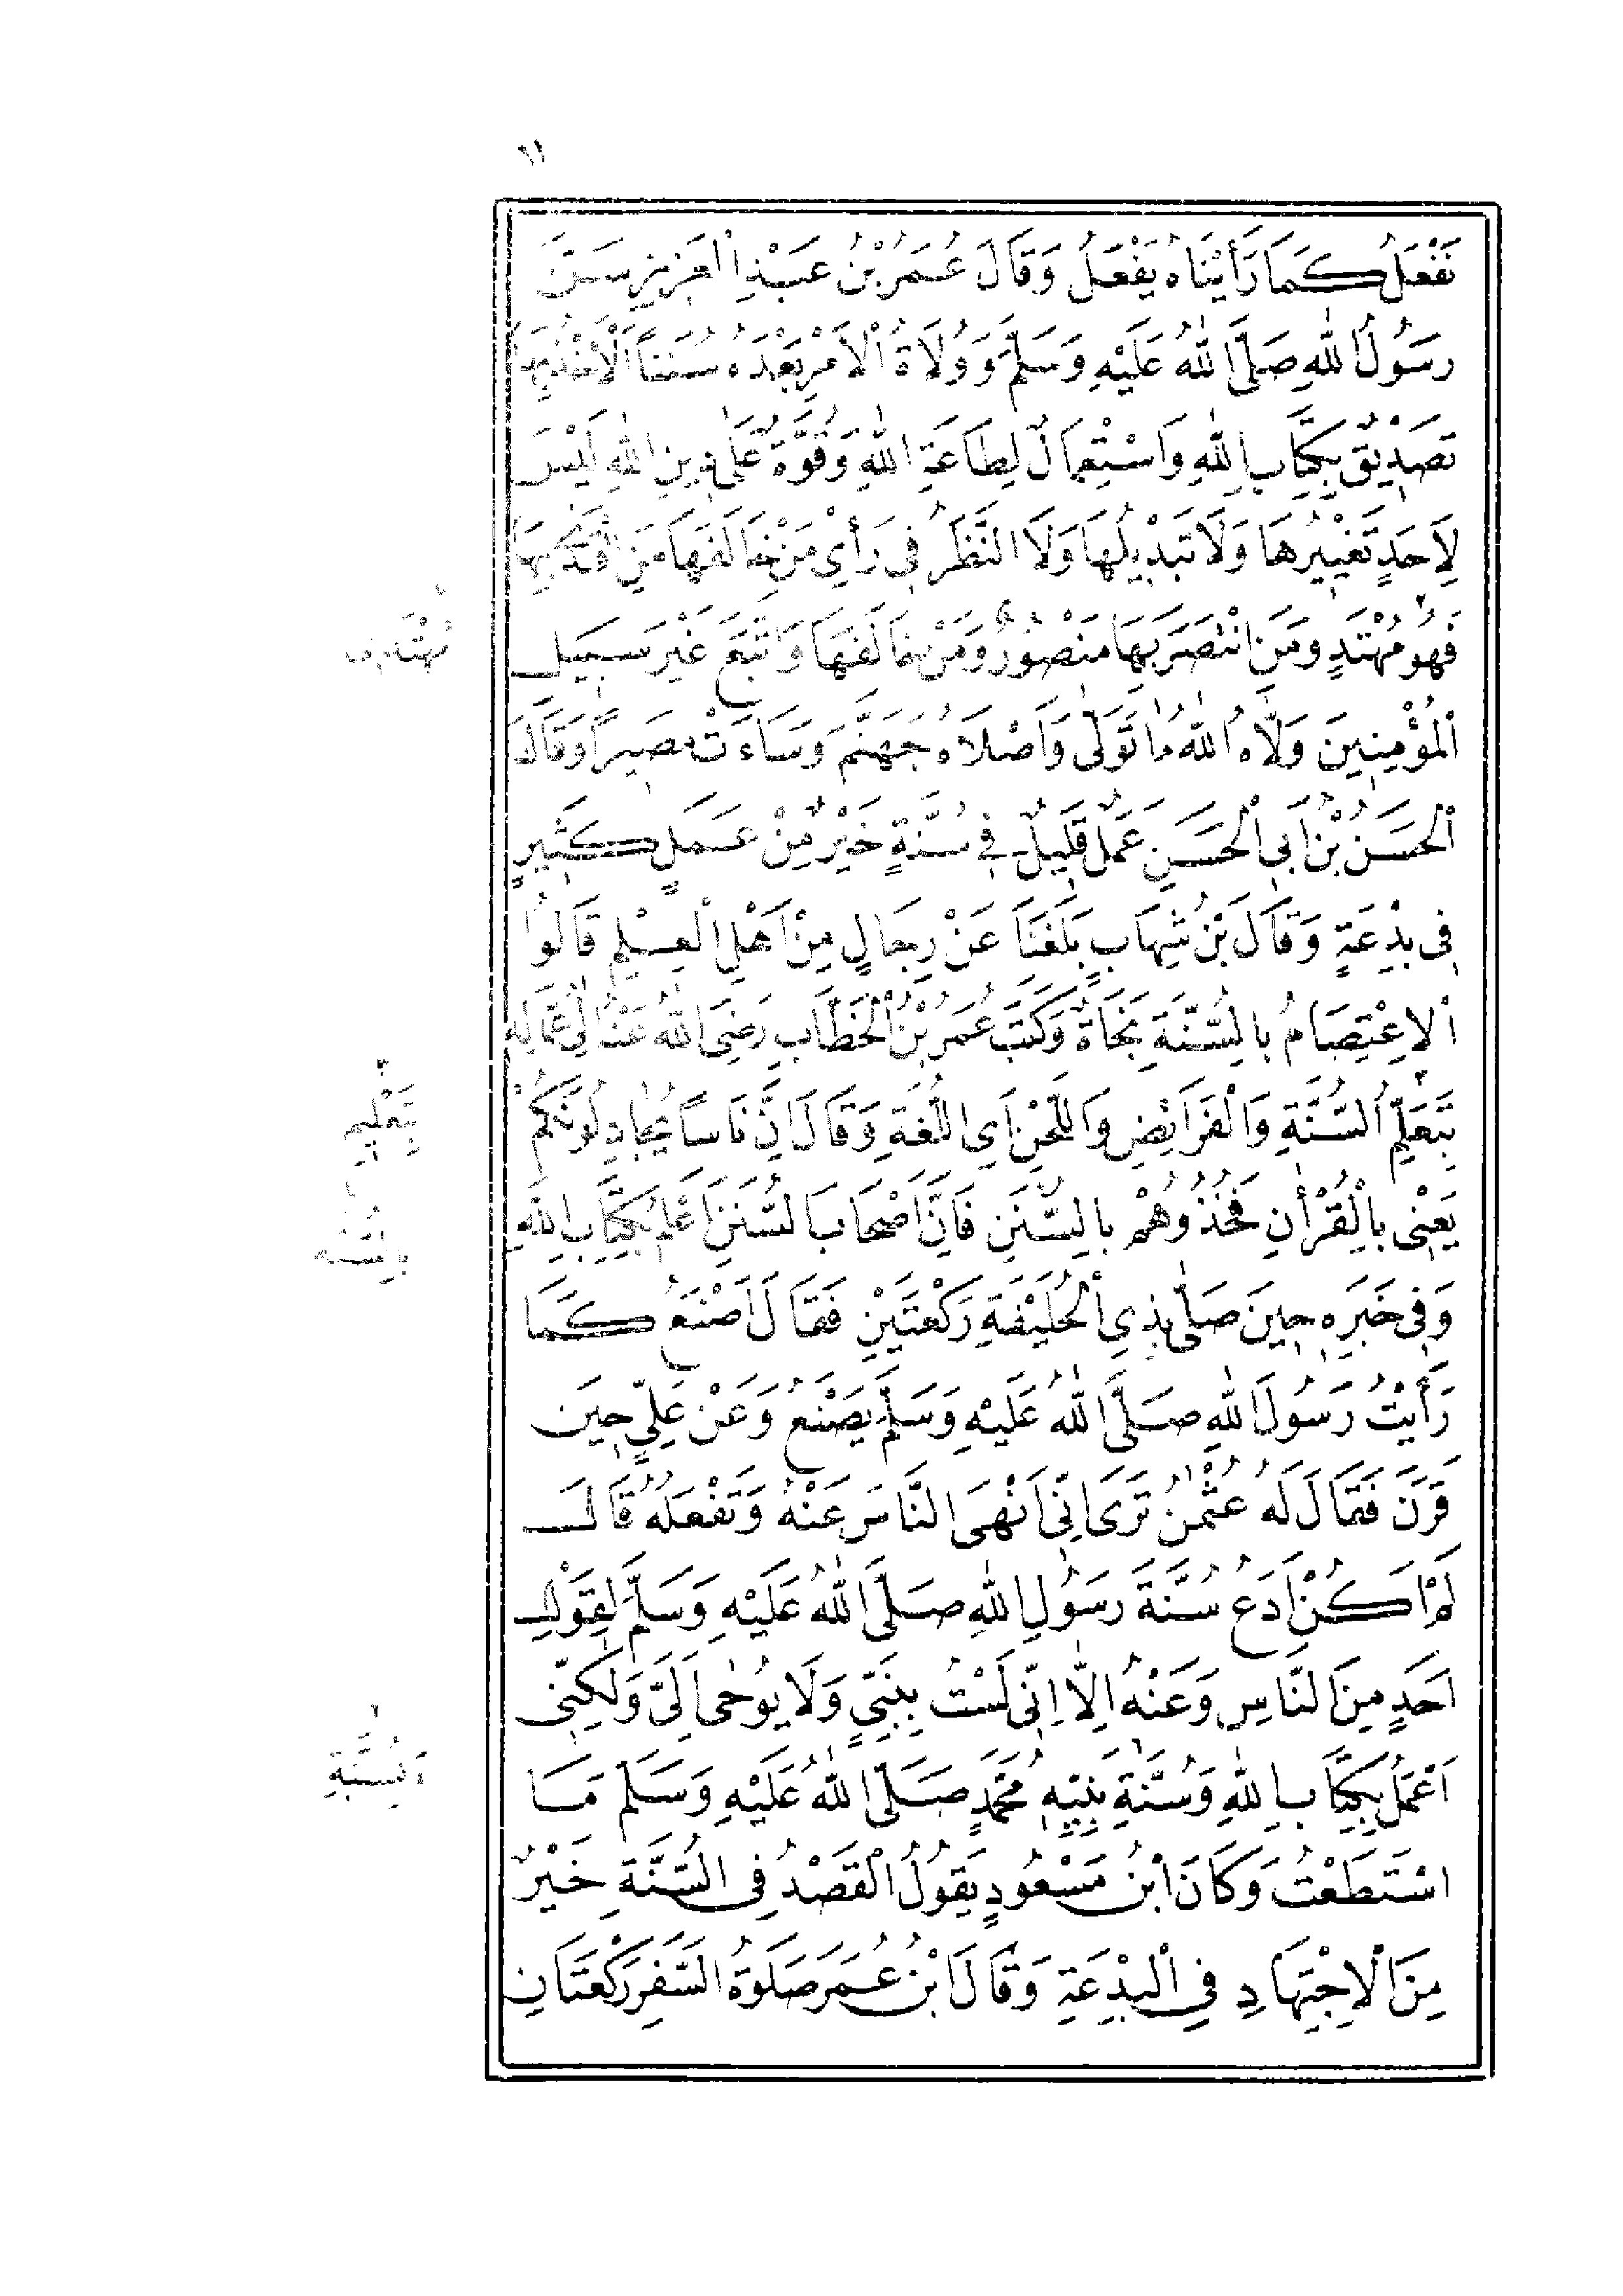 ١١
نَفْعَلُ كَمَا رَأَيْنَاهُ يَفْعَلُ وَقَالَ عُمَرُ بْنُ عَبْدِ الْعَزِيزِ سَنَّ
رَسُولُ اللهِ صَلَّى اللهُ عَلَيْهِ وَسَلَّمَ وَوُلَاةُ الْاَمْرِ بَعْدَهُ سُنَناً اَلْاَخْذُ بِهَا
تَصْدِيقٌ بِكِتَابِ اللهِ وَاسْتِعْمَالٌ لِطَاعَةِ اللهِ وَقُوَّةٌ عَلَى دِينِ اللهِ لَيْسَ
لِاَحَدٍ تَغْيِيرُهَا وَلَا تَبْدِيلُهَا وَلَا النَّظَرُ فِى رَأْىِ مَنْ خَالَفَهَا مَنِ اقْتَدَى بِهَا
فَهُوَ مُهْتَدٍ وَمَنِ انْتَصَرَ بِهَا مَنْصُورٌ وَمَنْ خَالَفَهَا وَاتَّبَعَ غَيْرَ سَبِيلِ
الْمُؤْمِنِينَ وَلَّاهُ اللهُ مَا تَوَلَّى وَاَصْلَاهُ جَهَنَّمَ وَسَاءَتْ مَصِيراً وَقَالَ
الْحَسَنُ بْنُ اَبِى الْحَسَنِ عَمَلٌ قَلِيلٌ فِى سُنَّةٍ خَيْرٌ مِنْ عَمَلٍ كَثِيرٍ
فِى بِدْعَةٍ وَقَالَ بْنُ شِهَابٍ بَلَغَنَا عَنْ رِجَالٍ مِنْ اَهْلِ الْعِلْمِ قَالُوا
اَلْاِعْتِصَامُ بِالسُّنَّةِ نَجَاةٌ وَكَتَبَ عُمَرُ بْنُ الْخَطَّابِ رَضِىَ اللهُ عَنْهُ اِلَى عُمَّالِهِ
بِتَعَلُّمِ السُّنَّةِ وَالْفَرَائِضِ وَاللَّحْنِ اَىِ اللُّغَةِ وَقَالَ اِنَّ نَاساً يُجَادِلُونَكُمْ
يَعْنِى بِالْقُرْاٰنِ فَخُذُوهُمْ بِالسُّنَنِ فَاِنَّ اَصْحَابَ السُّنَنِ اَعْلَمُ بِكِتَابِ اللهِ
وَفِى خَبَرِهِ حِينَ صَلَّى بِذِى الْحُلَيْفَةِ رَكْعَتَيْنِ فَقَالَ اَصْنَعُ كَمَا
رَأَيْتُ رَسُولَ اللهِ صَلَّى اللهُ عَلَيْهِ وَسَلَّمَ يَصْنَعُ وَعَنْ عَلِىٍّ حِينَ
قَرَنَ فَقَالَ لَهُ عُثْمٰنُ تَرَى اَنِّى اَنْهَى النَّاسَ عَنْهُ وَتَفْعَلُهُ قَالَ
لَمْ اَكُنْ اَدَعُ سُنَّةَ رَسُولِ اللهِ صَلَّى اللهُ عَلَيْهِ وَسَلَّمَ لِقَوْلِ
اَحَدٍ مِنَ النَّاسِ وَعَنْهُ اَلَا اِنِّى لَسْتُ بِنَبِىٍّ وَلَا يُوحٰى اِلَىَّ وَلٰكِنِّى
اَعْمَلُ بِكِتَابِ اللهِ وَسُنَّةِ نَبِيِّهِ مُحَمَّدٍ صَلَّى اللهُ عَلَيْهِ وَسَلَّمَ مَا
اسْتَطَعْتُ وَكَانَ ابْنُ مَسْعُودٍ يَقُولُ الْقَصْدُ فِى السُّنَّةِ خَيْرٌ
مِنَ الْاِجْتِهَادِ فِى الْبِدْعَةِ وَقَالَ ابْنُ عُمَرَ صَلَوةُ السَّفَرِ رَكْعَتَانِ
بِتَعْلِيمِ
بِالسُّنَّةِ
وَبِسُنَّةِ